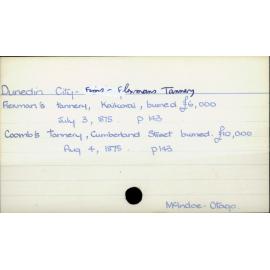 Dunedin City - Firms - Flexmans Tannery
Flexman's tannery, Kaikorai, burned £6,000
July 3, 1875. p 143
Coomb's tannery, Cumberland Street burned. £10,000
Aug 4, 1875. p143
McIndoe - Otago.